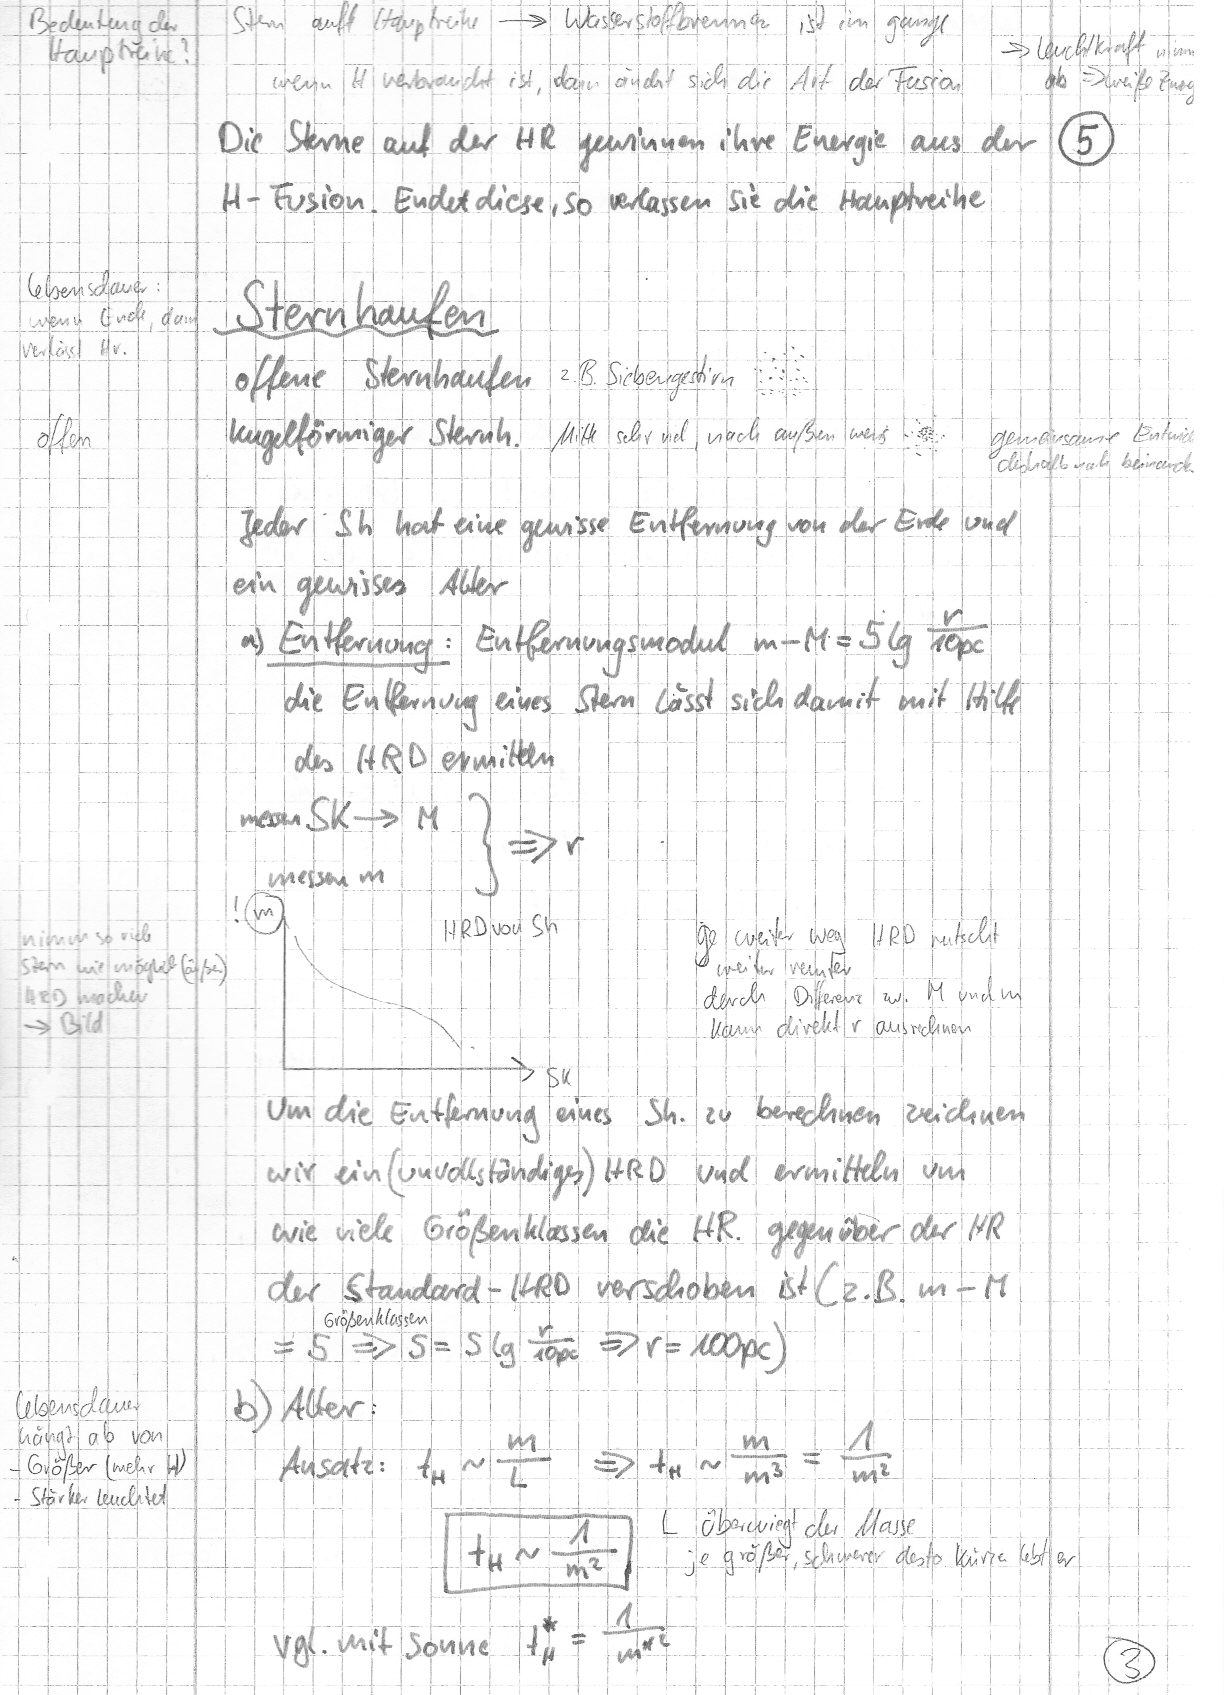 Bedeutung der
Hauptreihe?
Stern auft Hauptreihe → Wasserstoffbrennen ist im gange
wenn H verbraucht ist, dann ändert sich die Art der Fusion
⇒ Leuchtkraft nimm
ab ⇒ weiße Zwerg
Die Sterne auf der HR gewinnen ihre Energie aus der
H-Fusion. Endet diese, so verlassen sie die Hauptreihe
5
Lebensdauer:
wenn Ende, dann
verlässt Hr.
Sternhaufen
offene Sternhaufen z.B. Siebengestirn
offen
Kugelförmiger Sternh. Mitte sehr viel, nach außen wenig
gemeinsame Entwick
deshalb nah
Jeder Sh hat eine gewisse Entfernung von der Erde und
ein gewisses Alter
a) Entfernung: Entfernungsmodul m-M = 5 lg r/10pc
die Entfernung eines Stern lässt sich damit mit Hilfe
des HRD ermitteln
messen SK → M
messen m
} ⇒ r
! m
HRD von Sh
SK
nimm so viele
Stern wie möglich (außer)
HRD machen
→ Bild
Je weiter weg HRD rutscht
weiter runter
durch Differenz zw. M und m
kann direkt r ausrechnen
Um die Entfernung eines Sh. zu berechnen zeichnen
wir ein (unvollständiges) HRD und ermitteln um
wie viele Größenklassen die HR. gegenüber der HR
der Standard-HRD verschoben ist (z.B. m-M
Größenklassen
= 5 ⇒ 5 = 5 lg r/10pc ⇒ r = 100pc)
Lebensdauer
hängt ab von
- Größer (mehr H)
- Stärker leuchtet
b) Alter:
Ansatz: t_H ~ m/L ⇒ t_H ~ m/m³ = 1/m²
t_H ~ 1/m²
L überwiegt der Masse
je größer, schwerer desto kürzer lebt er
vgl. mit Sonne t_H* = 1/m*²
3